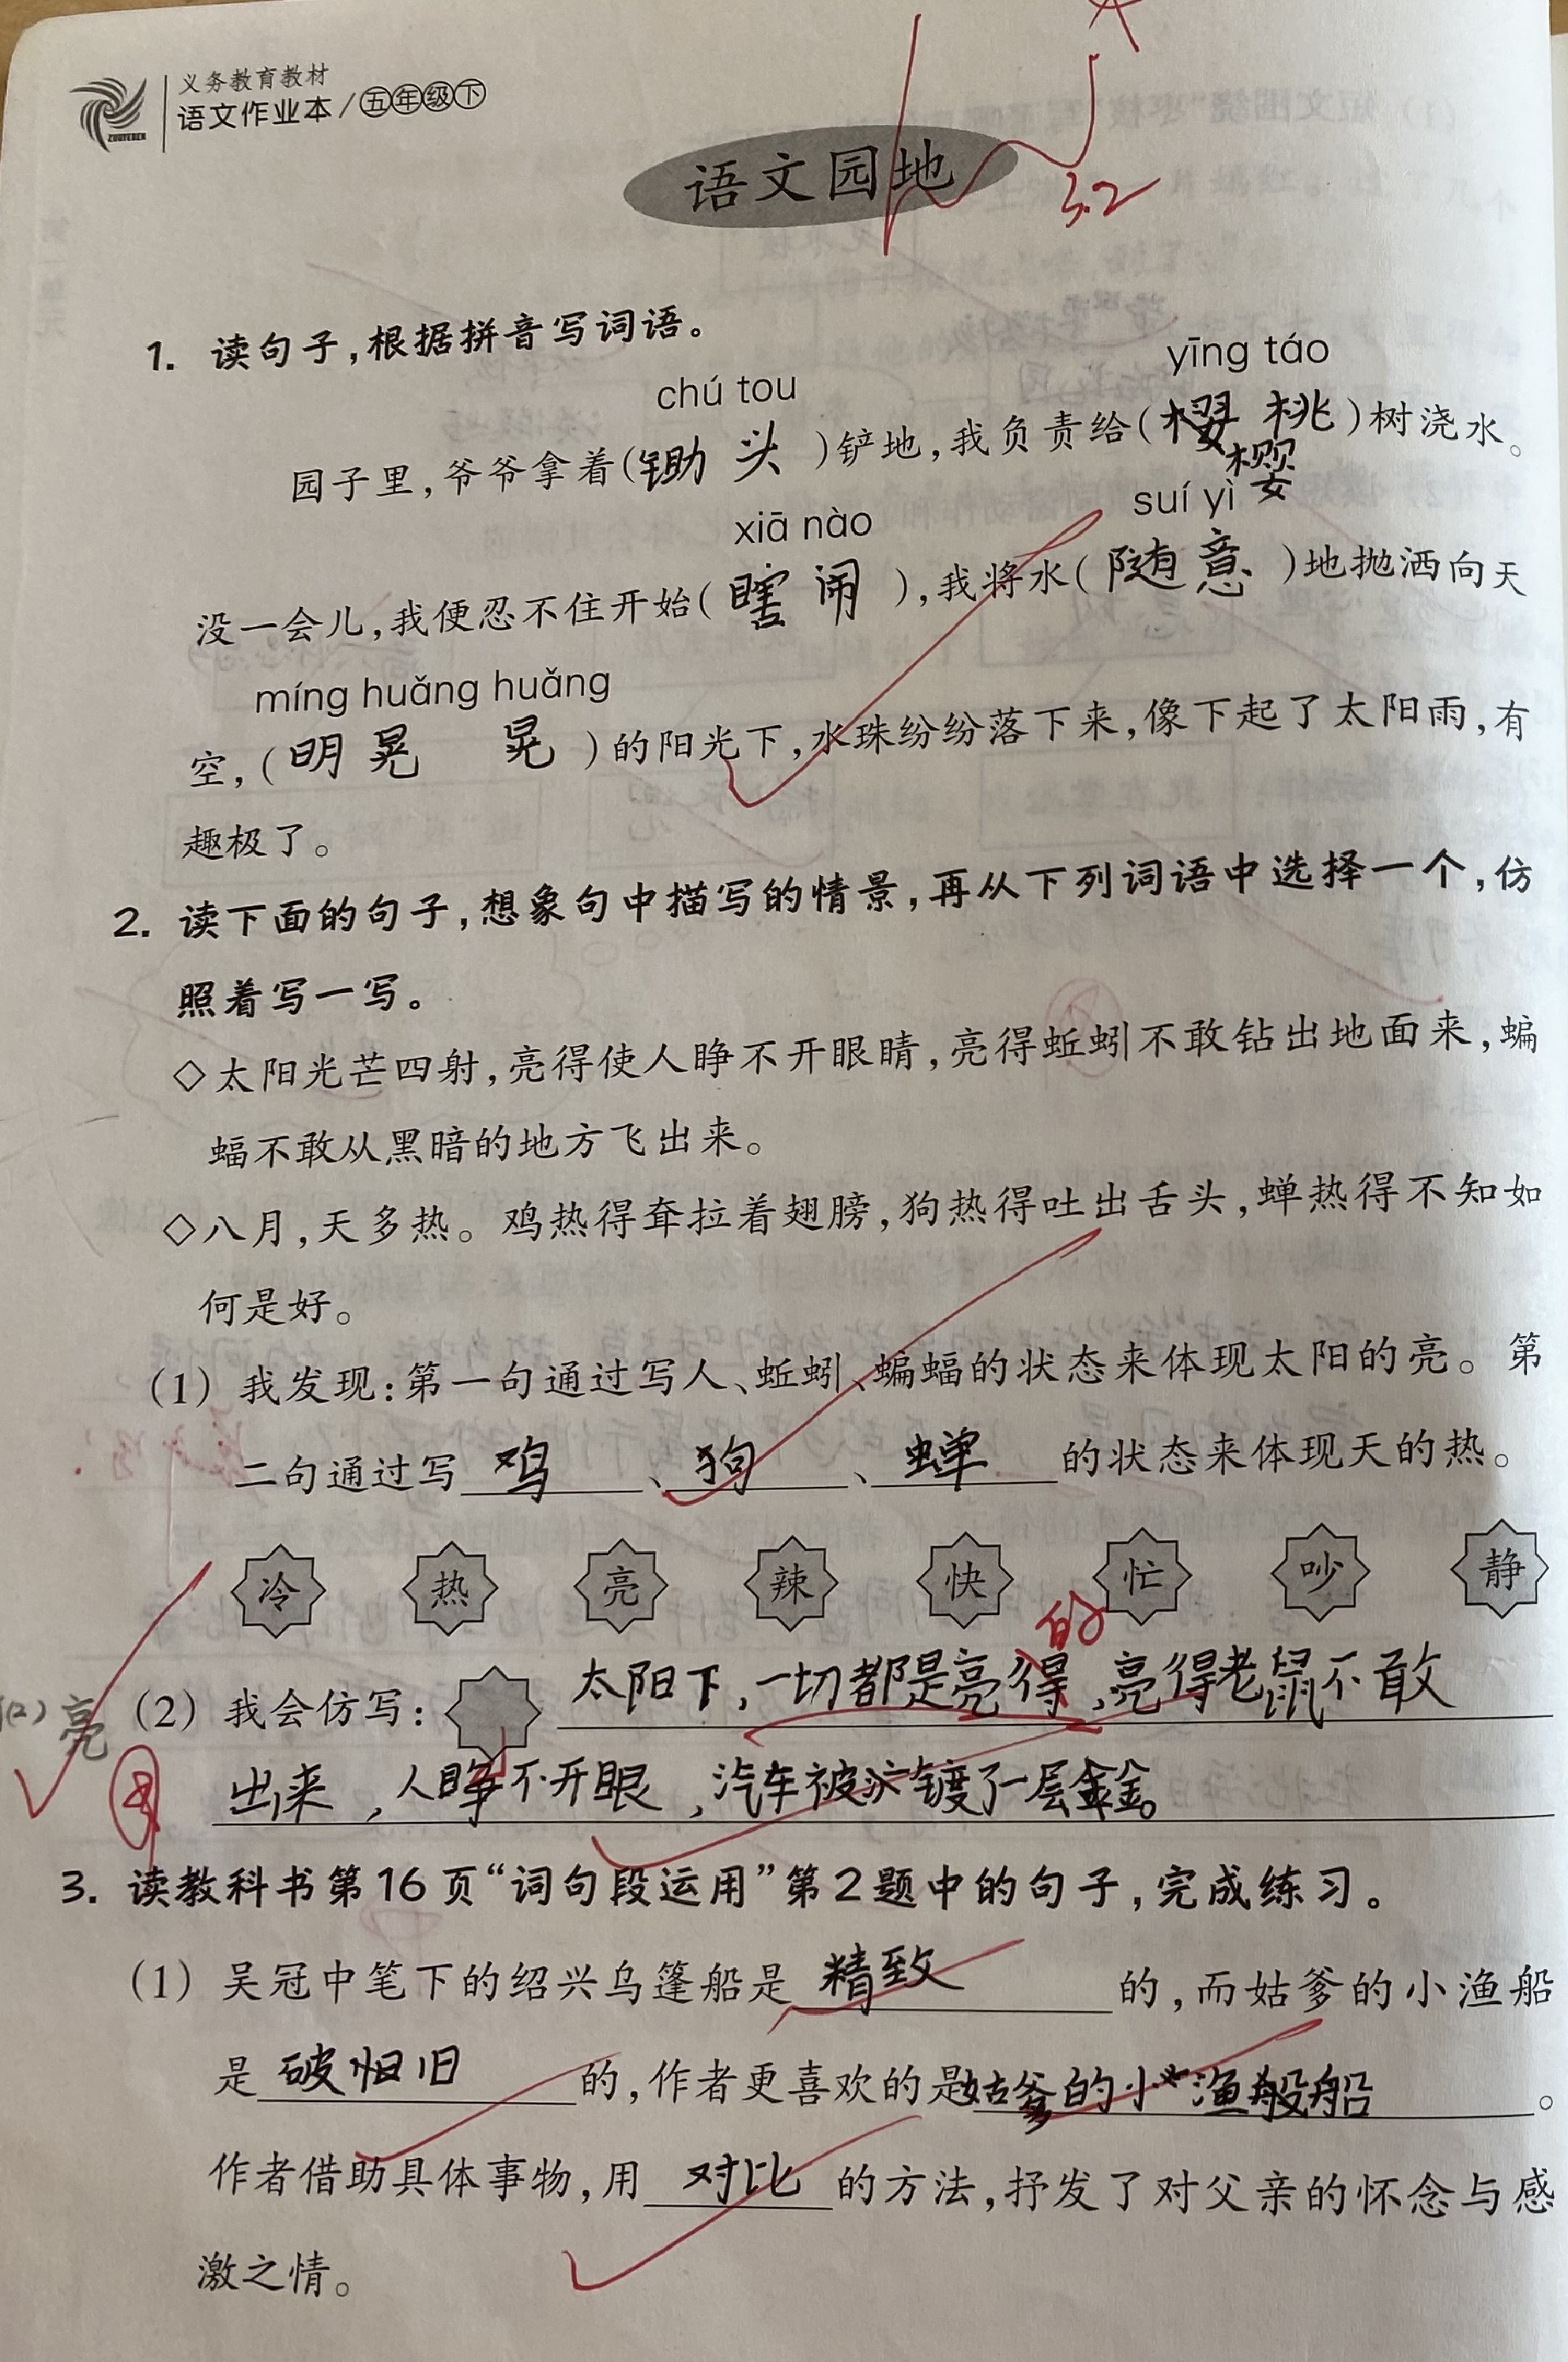 义务教育教材
语文作业本/五年级下
语文园地
3.2
1. 读句子,根据拼音写词语。
chú tou
yīng táo
园子里,爷爷拿着(锄头)铲地,我负责给(樱桃)树浇水。
樱
xiā nào
suí yì
没一会儿,我便忍不住开始(瞎闹),我将水(随意)地抛洒向天
míng huǎng huǎng
空,(明晃晃)的阳光下,水珠纷纷落下来,像下起了太阳雨,有
趣极了。
2. 读下面的句子,想象句中描写的情景,再从下列词语中选择一个,仿
照着写一写。
◇太阳光芒四射,亮得使人睁不开眼睛,亮得蚯蚓不敢钻出地面来,蝙
蝠不敢从黑暗的地方飞出来。
◇八月,天多热。鸡热得耷拉着翅膀,狗热得吐出舌头,蝉热得不知如
何是好。
(1) 我发现:第一句通过写人、蚯蚓、蝙蝠的状态来体现太阳的亮。第
二句通过写 鸡 、 狗 、 蝉 的状态来体现天的热。
冷 热 亮 辣 快 忙 吵 静
的
亮 (2) 我会仿写: 太阳下,一切都是亮得,亮得老鼠不敢
出来,人睁不开眼,汽车被镀了一层金。
3. 读教科书第16页“词句段运用”第2题中的句子,完成练习。
(1) 吴冠中笔下的绍兴乌篷船是 精致 的,而姑爹的小渔船
是 破旧 的,作者更喜欢的是姑爹的小渔船。
作者借助具体事物,用 对比 的方法,抒发了对父亲的怀念与感
激之情。